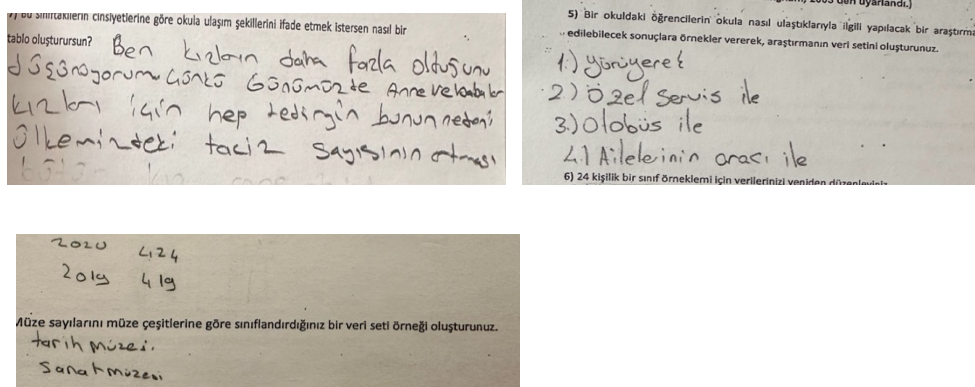 7) Bu sınıftakilerin cinsiyetlerine göre okula ulaşım şekillerini ifade etmek istersen nasıl bir
tablo oluşturursun?
Ben kızların daha fazla olduğunu
düşünüyorum Çünkü Günümüzde Anne ve babalar
kızları için hep tedirgin bunun nedeni
Ülkemizdeki taciz sayısının artması
uyarlandı.)
5) Bir okuldaki öğrencilerin okula nasıl ulaştıklarıyla ilgili yapılacak bir araştırma
edilebilecek sonuçlara örnekler vererek, araştırmanın veri setini oluşturunuz.
1.) yürüyerek
2) Özel Servis ile
3.) Olobüs ile
4.) Ailelerinin aracı ile
6) 24 kişilik bir sınıf örneklemi için verilerinizi yeniden düzenleyiniz
2020 424
2019 419
Müze sayılarını müze çeşitlerine göre sınıflandırdığınız bir veri seti örneği oluşturunuz.
tarih müzesi.
Sanat müzesi